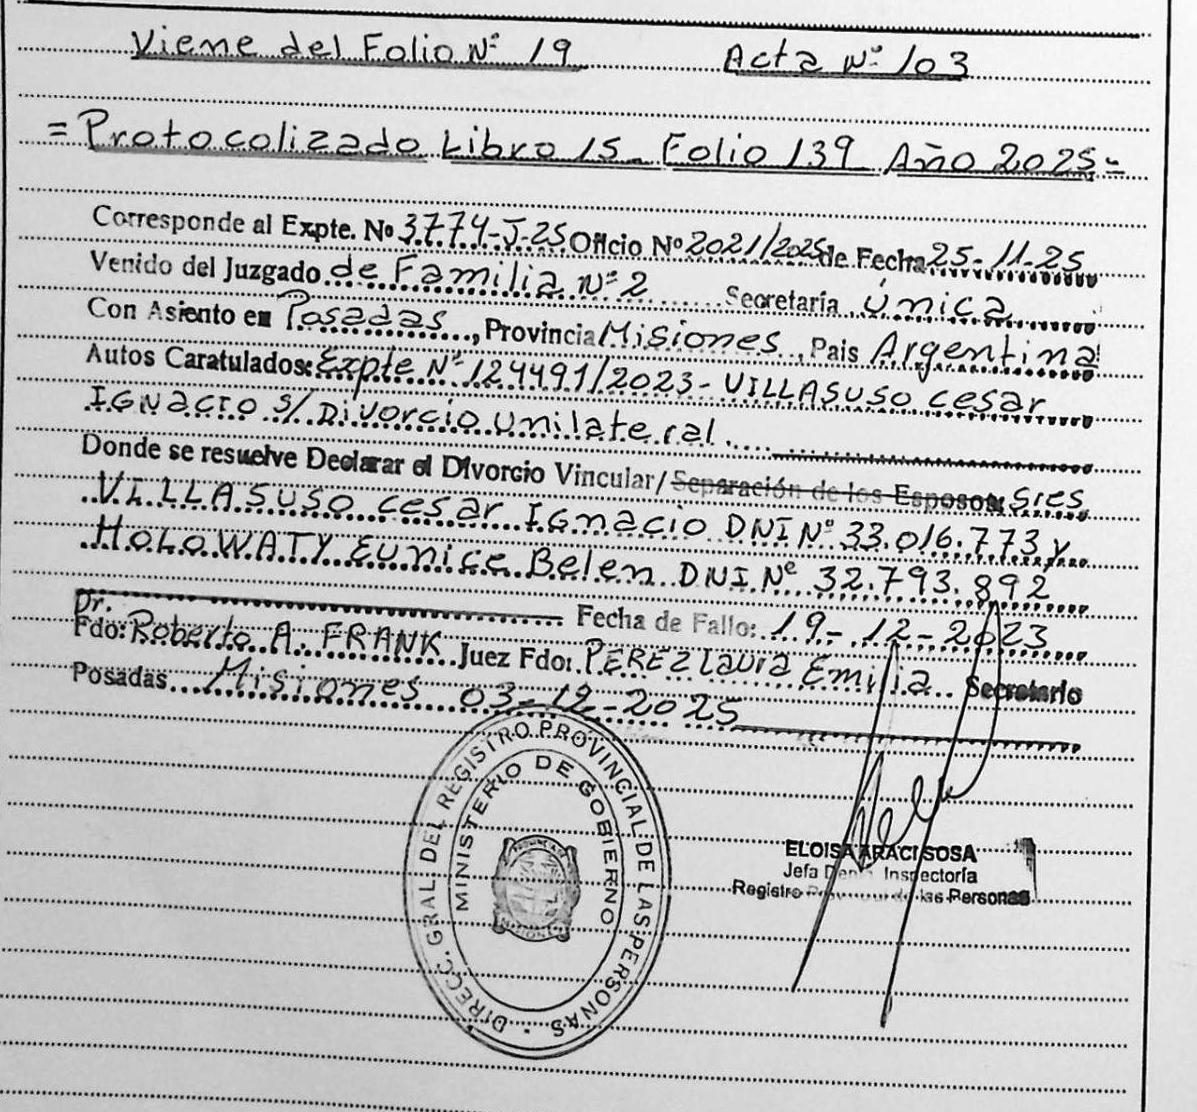 Viene del Folio Nº 19 Acta Nº 103
= Protocolizado Libro 15 - Folio 139 Año 2025 -
Corresponde al Expte. Nº 3774-J-25 Oficio Nº 2021/2025 de Fecha 25-11-25
Venido del Juzgado de Familia Nº 2 Secretaría Única
Con Asiento en Posadas, Provincia Misiones, Pais Argentina
Autos Caratulados: Expte Nº 124491/2023 - VILLASUSO cesar
IGNACIO s/ Divorcio Unilateral
Donde se resuelve Declarar el Divorcio Vincular/Separación de los Esposos: Sres
VILLASUSO cesar IGnacio DNI Nº 33.016.773 y
HOLOWATY Eunice Belen DNI Nº 32.793.892
Fecha de Fallo: 19-12-2023
Dr.
Fdo: Roberto A. FRANK Juez Fdo: PEREZ Laura Emilia Secretario
Posadas Misiones 03-12-2025
DIRECC. GRAL. DEL REGISTRO PROVINCIAL DE LAS PERSONAS
MINISTERIO DE GOBIERNO
ELOISA ARACI SOSA
Jefa Inspectoría
Registro de las Personas